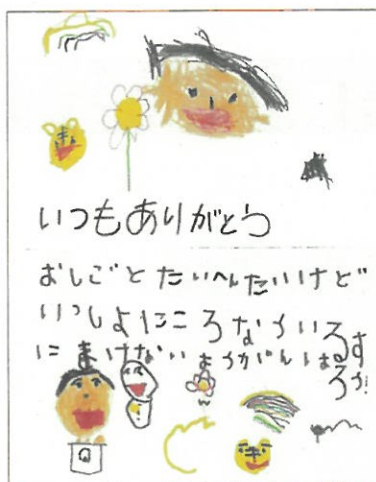 いつもありがとう
おしごとたいへんたいけど
いっしよにころなういるす
にまけないようがんばろう!